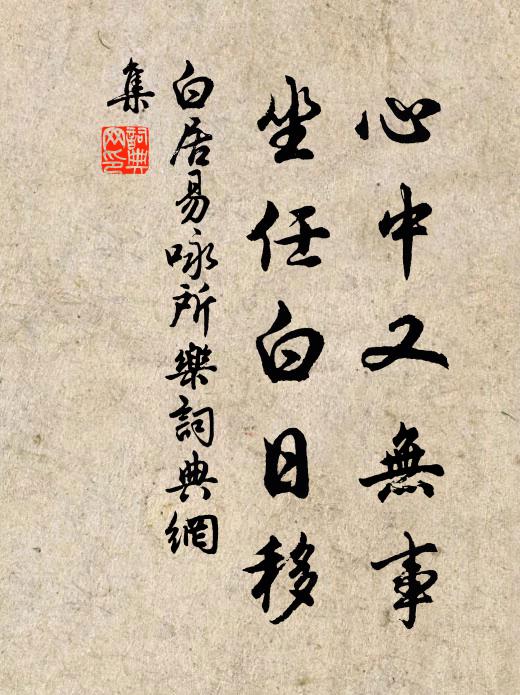 心中又無事
坐任白日移
白居易咏所樂詞典網
集
詞典
网印